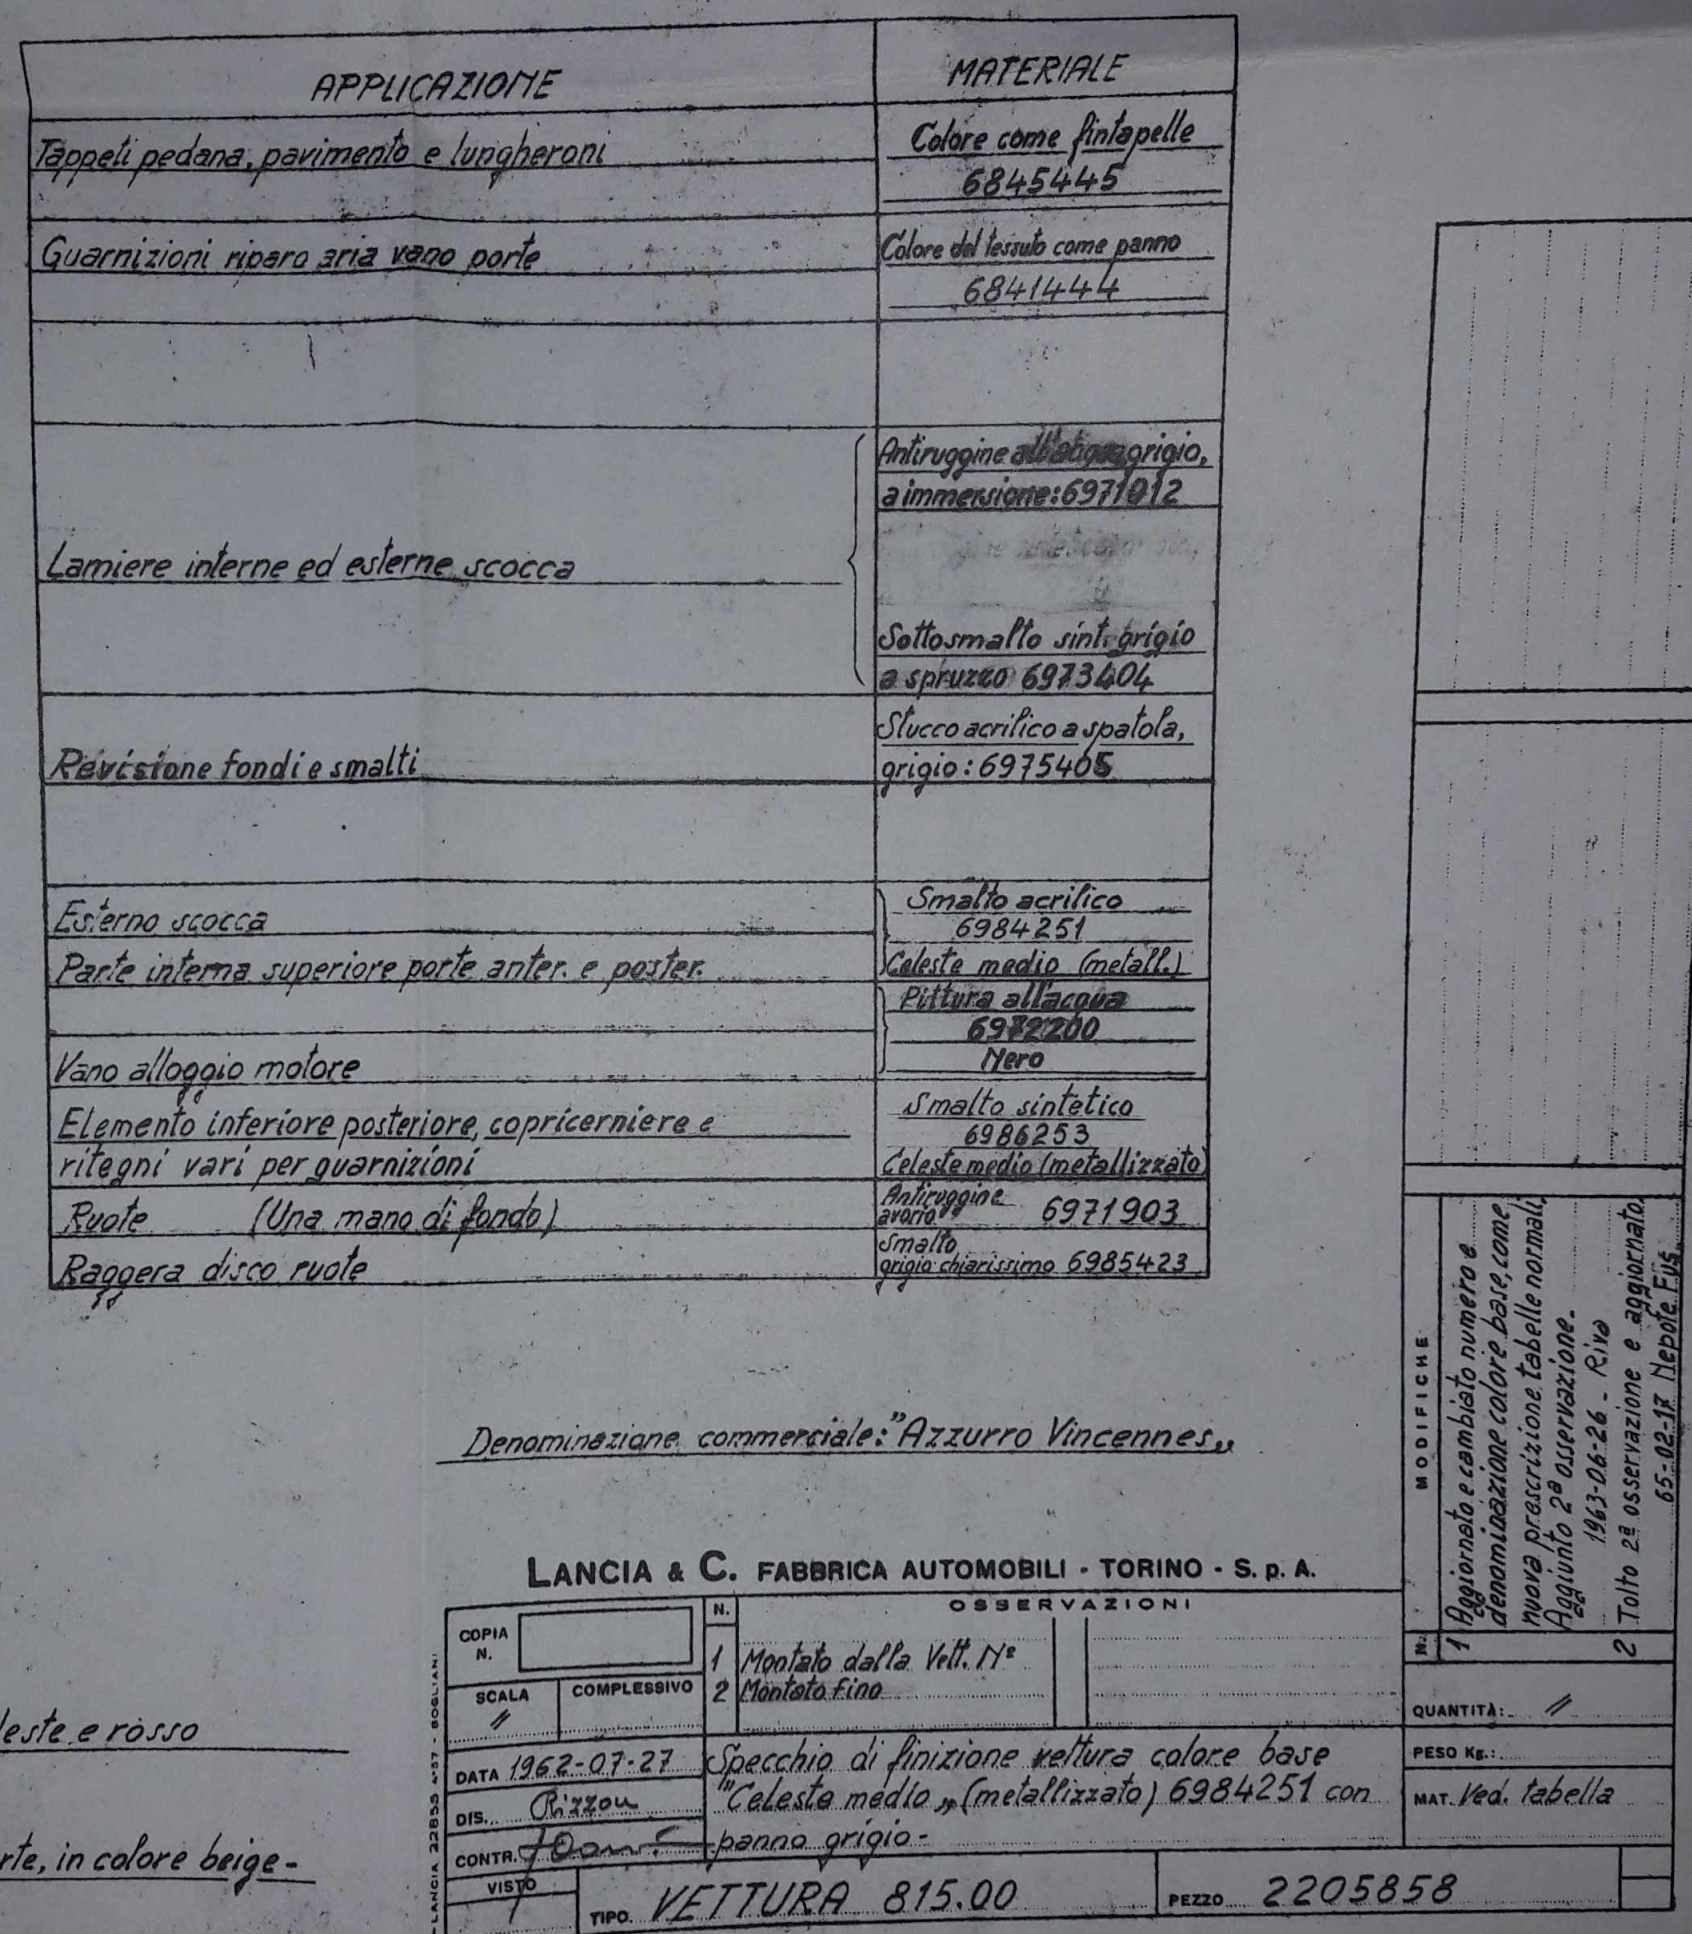 APPLICAZIONE
MATERIALE
Tappeti pedana, pavimento e lungheroni
Colore come fintapelle
6845445
Guarnizioni riparo aria vano porte
Colore del tessuto come panno
6841444
Lamiere interne ed esterne scocca
Antiruggine grigio,
a immersione: 6971012
Sottosmalto sint. grigio
a spruzzo 6973404
Revisione fondi e smalti
Stucco acrilico a spatola,
grigio: 6975405
Esterno scocca
Parte interna superiore porte anter. e poster.
Smalto acrilico
6984251
Celeste medio (metall.)
Vano alloggio motore
Pittura all'acqua
6972200
Nero
Elemento inferiore posteriore, copricerniere e
ritegni vari per guarnizioni
Smalto sintetico
6986253
Celeste medio (metallizzato)
Ruote (Una mano di fondo)
Antiruggine
avorio 6971903
Raggera disco ruote
Smalto
grigio chiarissimo 6985423
Denominazione commerciale: "Azzurro Vincennes„
LANCIA & C. FABBRICA AUTOMOBILI - TORINO - S. p. A.
COPIA
N.
SCALA
//
COMPLESSIVO
N.
OSSERVAZIONI
1 Montato dalla Vett. N°
2 Montato fino
DATA 1962-07-27
DIS. Rizzou
CONTR.
VISTO
Specchio di finizione vettura colore base
"Celeste medio„ (metallizzato) 6984251 con
panno grigio-
TIPO. VETTURA 815.00
PEZZO 2205858
LANCIA 22855 4-57 - BOGLIANI
MODIFICHE
N.
1 Aggiornato e cambiato numero e
denominazione colore base, come
nuova prescrizione tabelle normali.
Aggiunto 2ª osservazione.
1963-06-26 - Riva
2 Tolto 2ª osservazione e aggiornato.
65-02-17 Nepote Fus
QUANTITÀ: //
PESO Kg.:
MAT. Ved. tabella
leste e rosso
rte, in colore beige-